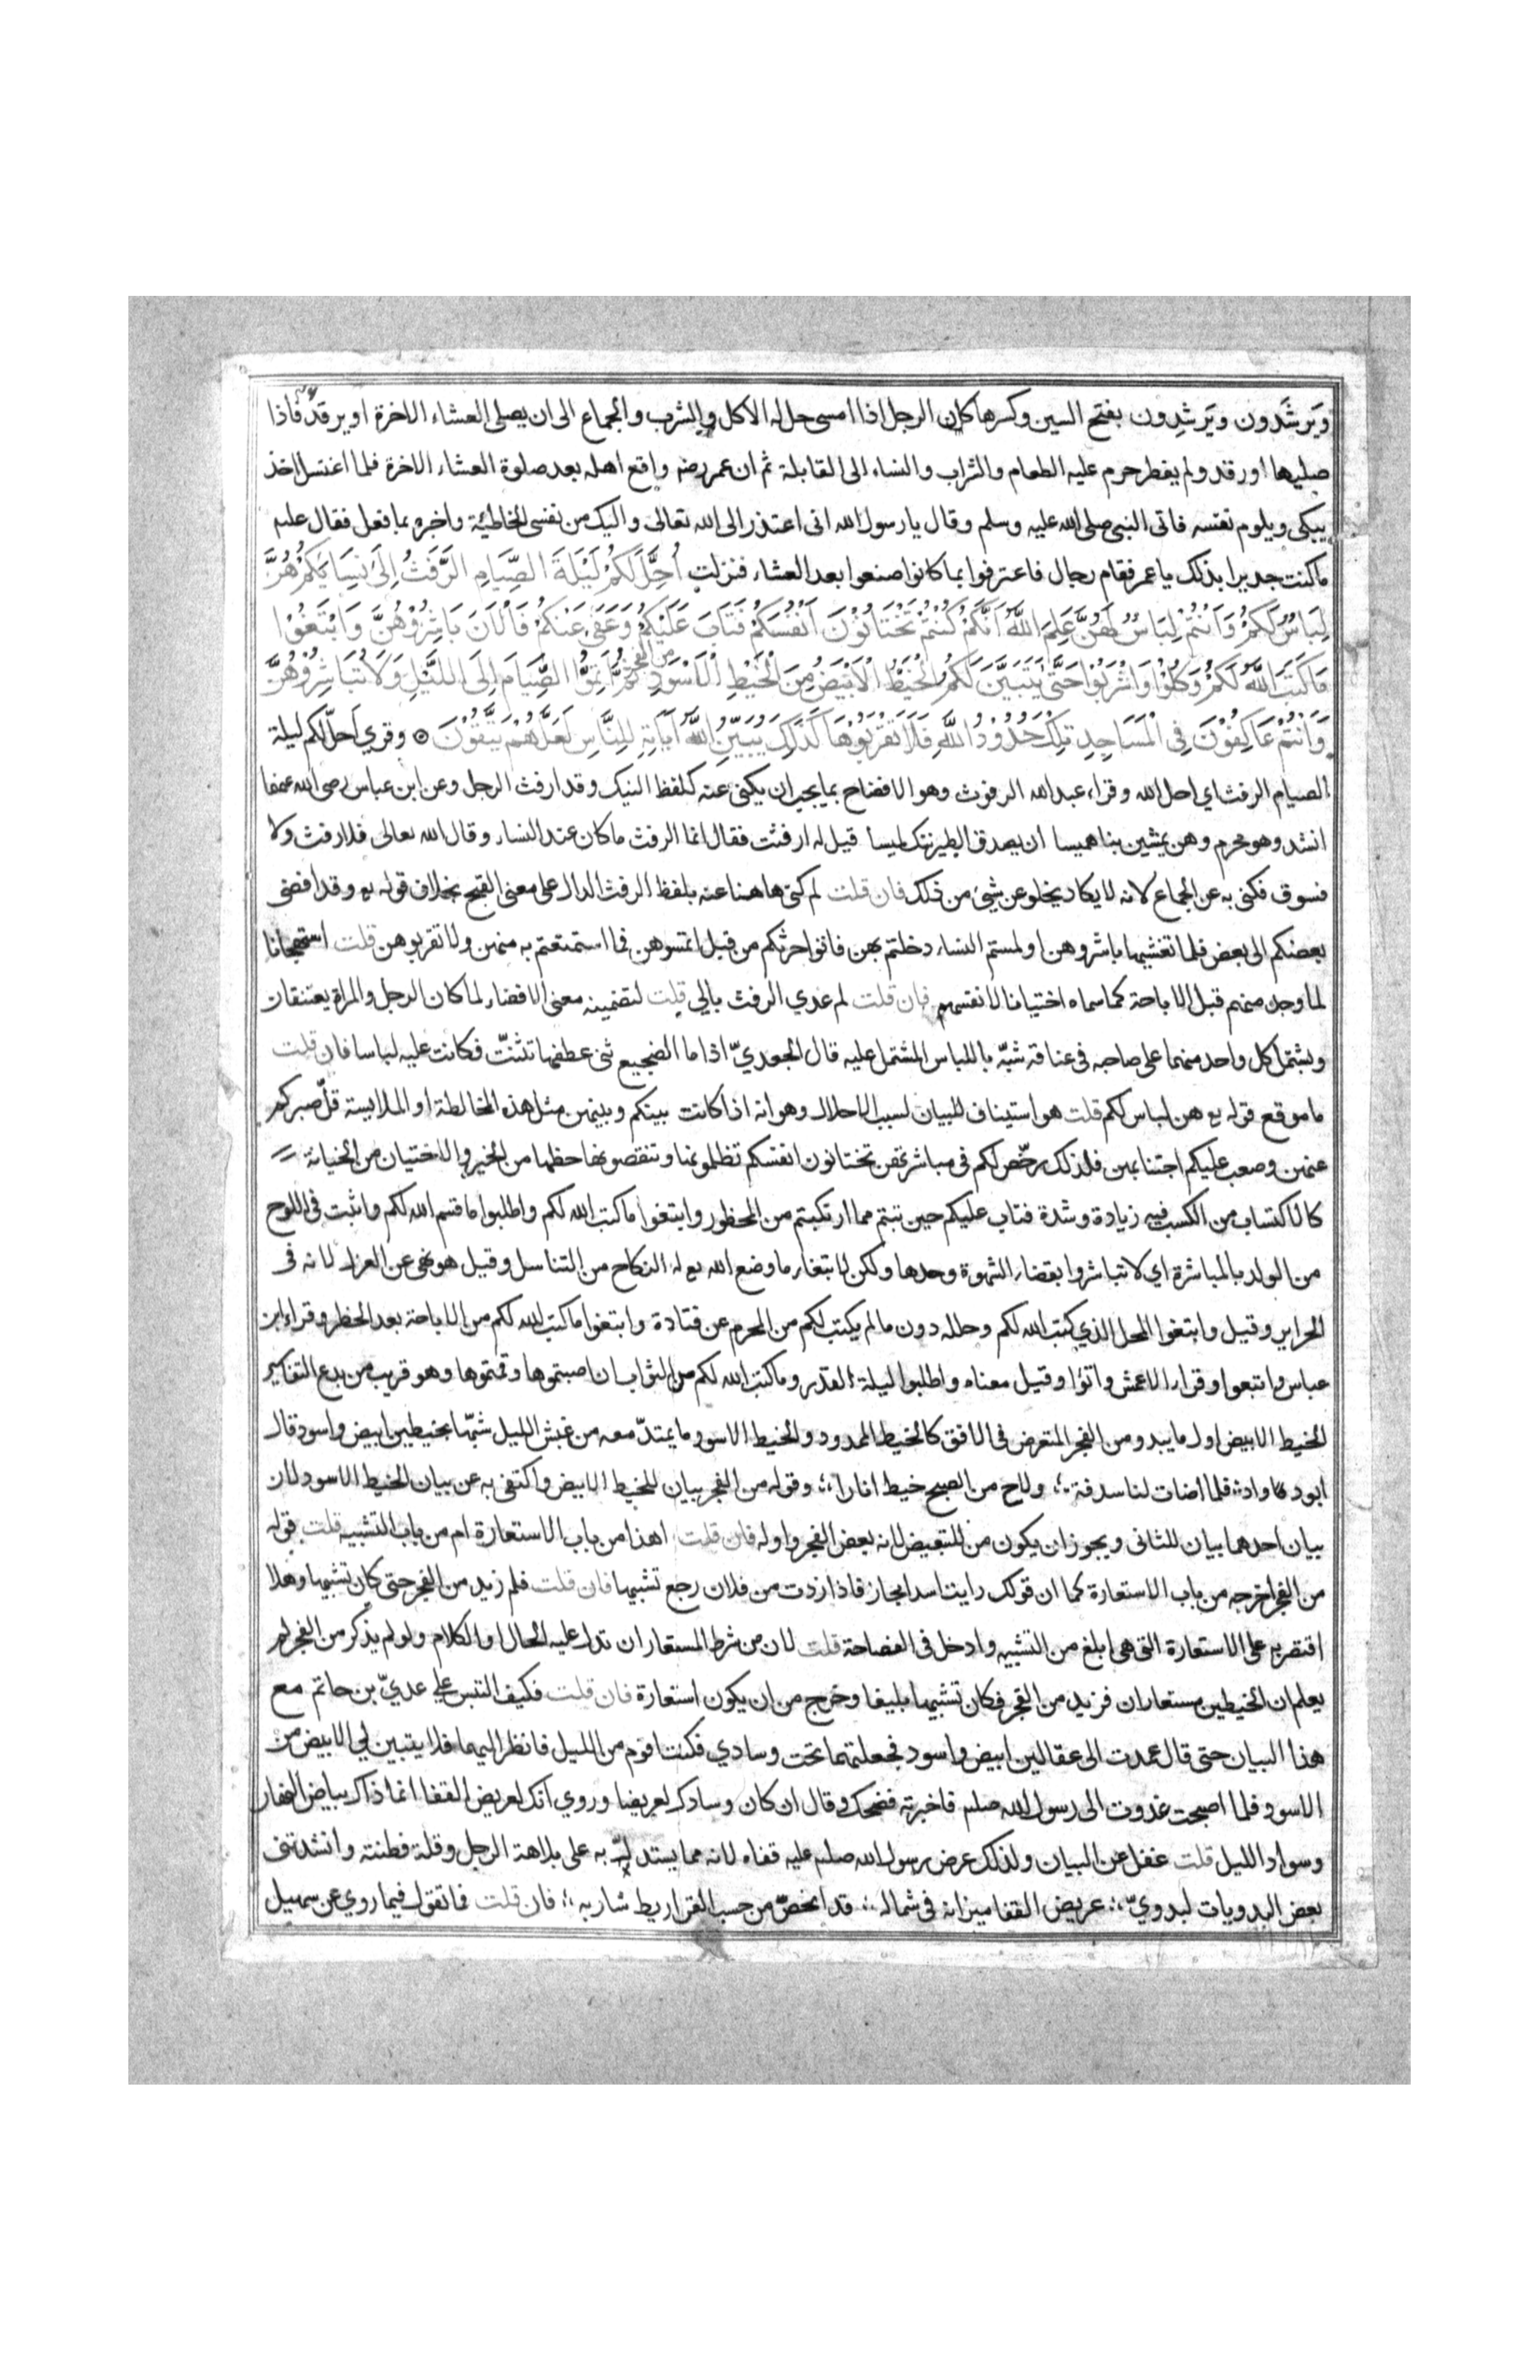 ويَرشَدون ويَرشِدون بفتح السين وكسرها كان الرجل اذا امسى حل له الاكل والشرب والجماع الى ان يصلى العشاء الاخرة او يرقد فاذا
صليها او رقد ولم يفطر حرم عليه الطعام والشراب والنساء الى القابلة ثم ان عمر رضه واقع اهله بعد صلوة العشاء الاخرة فلما اغتسل اخذ
يبكى ويلوم نفسه فاتى النبى صلى الله عليه وسلم وقال يا رسول الله انى اعتذر الى الله تعالى واليك من نفسى الخاطئة واخبره بما فعل فقال علىه
ماكنت جديرا بذلك يا عمر فقام رجال فاعترفوا بما كانوا صنعوا بعد العشاء فنزلت أُحِلَّ لَكُمْ لَيْلَةَ الصِّيَامِ الرَّفَثُ إِلَى نِسَائِكُمْ هُنَّ
لِبَاسٌ لَكُمْ وَأَنْتُمْ لِبَاسٌ لَهُنَّ عَلِمَ اللَّهُ أَنَّكُمْ كُنْتُمْ تَخْتَانُوْنَ أَنْفُسَكُمْ فَتَابَ عَلَيْكُمْ وَعَفَى عَنْكُمْ فَالْآنَ بَاشِرُوْهُنَّ وَابْتَغُوْا
مَا كَتَبَ اللَّهُ لَكُمْ وَكُلُوْا وَاشْرَبُوْا حَتَّى يَتَبَيَّنَ لَكُمُ الْخَيْطُ الْأَبْيَضُ مِنَ الْخَيْطِ الْأَسْوَدِ من الفجر ثُمَّ أَتِمُّوا الصِّيَامَ إِلَى اللَّيْلِ وَلَا تُبَاشِرُوْهُنَّ
وَأَنْتُمْ عَاكِفُوْنَ فِى الْمَسَاجِدِ تِلْكَ حُدُوْدُ اللَّهِ فَلَا تَقْرَبُوْهَا كَذَلِكَ يُبَيِّنُ اللَّهُ آيَاتِهِ لِلنَّاسِ لَعَلَّهُمْ يَتَّقُوْنَ ۞ وقري اَحلّ لكم ليلة
الصيام الرفث اي احل الله وقراء عبد الله الرفوث وهو الافضاح بما يجب ان يكنى عنه كلفظ النيك وقد ارفث الرجل وعن ابن عباس رضى الله عنهما
انشد وهو محرم وهن يمشين بنا هميسا ان يصدق الطير ننك لميسا قيل له ارفثت فقال انما الرفث ما كان عند النساء وقال الله تعالى فلا رفث ولا
فسوق فكنى به عن الجماع لانه لا يكاد يخلو عن شيئ من ذلك فان قلت لم كنى هاهنا عنه بلفظ الرفث الدال على معنى القبح بخلاف قوله يع وقد افضى
بعضكم الى بعض فلما تغشيها باشروهن او لمستم النساء دخلتم بهن فاتوا حرثكم من قبل ان تمسوهن فما استمتعتم به منهن ولا تقربوهن قلت استهجانا
لما وجد منهم قبل الاباحة كما سماه اختيانا لانفسهم فان قلت لم عدي الرفث بالي قلت لتضمينه معنى الافضاء لما كان الرجل والمراة يعتنقان
ويشتمل كل واحد منهما على صاحبه فى عناقه شبّه باللباس المشتمل عليه قال الجعديّ اذا ما الضجيع ثنى عطفها تثنّت فكانت عليه لباسا فان قلت
ما موقع قوله يع هن لباس لكم قلت هو استيناف للبيان لسبب الاحلال وهو انه اذا كانت بينكم وبينهن مثل هذه المخالطة او الملابسة قلّ صبركم
عنهن وصعب عليكم اجتنابهن فلذلك رخّص لكم فى مباشرتهن تختانون انفسكم تظلمونها وتنقصونها حظها من الخير والاختيان من الخيانة
كالاكتساب من الكسب فيه زيادة وشدة فتاب عليكم حين تبتم مما ارتكبتم من المحظور وابتغوا ما كتب الله لكم واطلبوا ما قسم الله لكم واثبت فى اللوح
من الولد بالمباشرة اي لا تباشروا بقضاء الشهوة وحدها ولكن لابتغاء ما وضع الله يع له النكاح من التناسل وقيل هو نهى عن العزل لانه فى
الحراير وقيل وابتغوا المحل الذي كتب الله لكم وحلله دون ما لم يكتب لكم من المحرم عن قتادة وابتغوا ما كتب الله لكم من الاباحة بعد الحظر وقراء ابن
عباس واتبعوا وقراء الاعمش واتوا وقيل معناه واطلبوا ليلة القدر وما كتب الله لكم من الثواب ان اصبتموها وقمتموها وهو قريب من بدع التفاسير
الخيط الابيض اول ما يبدو من الفجر المتعرض فى الافق كالخيط الممدود والخيط الاسود ما يمتدّ معه من غبش الليل شبّها بخيطين ابيض واسود قال
ابو دواد فلما اضات لنا سدفة ؛ ولاح من الصبح خيط انارا ؛ وقوله من الفجر بيان للخيط الابيض واكتفى به عن بيان الخيط الاسود لان
بيان احدهما بيان للثانى ويجوز ان يكون من للتبعيض لانه بعض الفجر واوله فان قلت اهذا من باب الاستعارة ام من باب التشبيه قلت قوله
من الفجر اخرجه من باب الاستعارة كما ان قولك رايت اسدا مجاز فاذا زدت من فلان رجع تشبيها فان قلت فلم زيد من الفجر حتى كان تشبيها وهلا
اقتصر به على الاستعارة التى هى ابلغ من التشبيه وادخل فى الفصاحة قلت لان من شرط المستعار ان تدل عليه الحال او الكلام ولو لم يذكر من الفجر لم
يعلم ان الخيطين مستعاران فزيد من الفجر فكان تشبيها بليغا وخرج من ان يكون استعارة فان قلت فكيف التبس على عديّ بن حاتم مع
هذا البيان حتى قال عمدت الى عقالين ابيض واسود فجعلتهما تحت وسادي فكنت اقوم من الليل فانظر اليهما فلا يتبين لي الابيض من
الاسود فلما اصبحت غدوت الى رسول الله صلىم فاخبرته فضحك وقال ان كان وسادك لعريضا وروي انك لعريض القفا انما ذاك بياض النهار
وسواد الليل قلت غفل عن البيان ولذلك عرض رسول الله صلىم عليه قفاه لانه مما يستدلّ به على بلاهة الرجل وقلة فطنته وانشدتنى
بعض البدويات لبدويّ ؛ عريض القفا ميزانه فى شماله ؛ قد انحصّ من حسب القراريط شاربه ؛ فان قلت فما تقول فيما روي عن سهيل